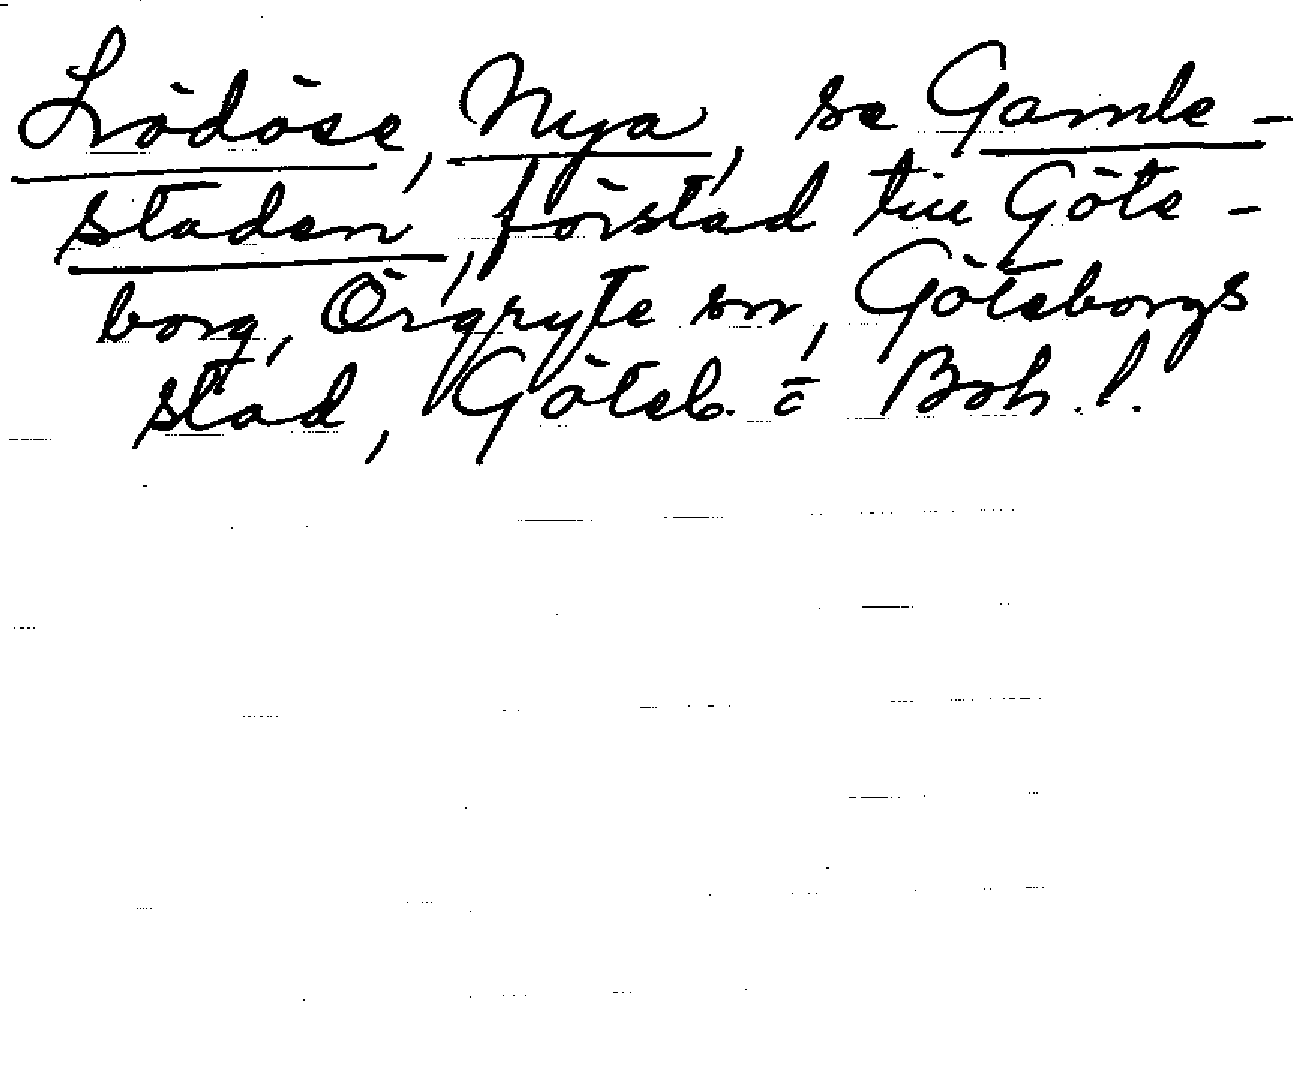 Lödöse, Nya, se Gamle-
staden, förstad till Göte-
borg, Örgryte sn, Göteborgs
stad, Göteb. o Boh. l.